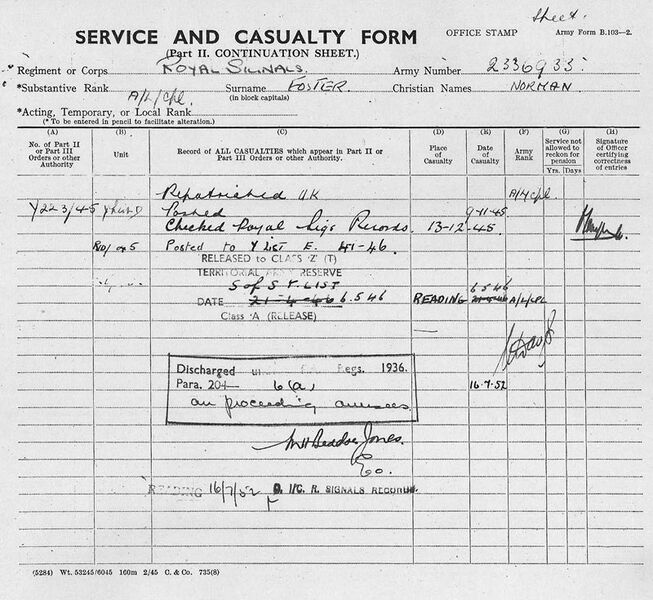 Sheet.
SERVICE AND CASUALTY FORM OFFICE STAMP Army Form B.103—2.
(Part II. CONTINUATION SHEET.)
*Regiment or Corps ROYAL SIGNALS. Army Number 2336933.
*Substantive Rank A/L/Cpl Surname FOSTER Christian Names NORMAN.
(in block capitals)
*Acting, Temporary, or Local Rank
(* To be entered in pencil to facilitate alteration.)
(A) (B) (C) (D) (E) (F) (G) (H)
No. of Part II or Part III Orders or other Authority. Unit Record of ALL CASUALTIES which appear in Part II or Part III Orders or other Authority. Place of Casualty Date of Casualty Army Rank Service not allowed to reckon for pension Yrs. Days Signature of Officer certifying correctness of entries
Repatriated UK A/L/Cpl.
Y223/45 Y List D Posted 9-11-45
Checked Royal Sigs Records. 13-12-45.
Posted to Y LIST E. 4-1-46.
RELEASED TO CLASS 'Z' (T)
TERRITORIAL ARMY RESERVE
S of S Y. LIST 6.5.46
DATE 21-4-46 6.5.46 READING A/L/CPL
Class 'A (RELEASE)
Discharged T.A. Regs. 1936.
Para. 204 6(a) 16-7-52
on proceeding overseas.
Jones.
READING 16/7/52 R. SIGNALS RECORDS
(5284) Wt. 53245/6045 160m 2/45 C. & Co. 735(8)